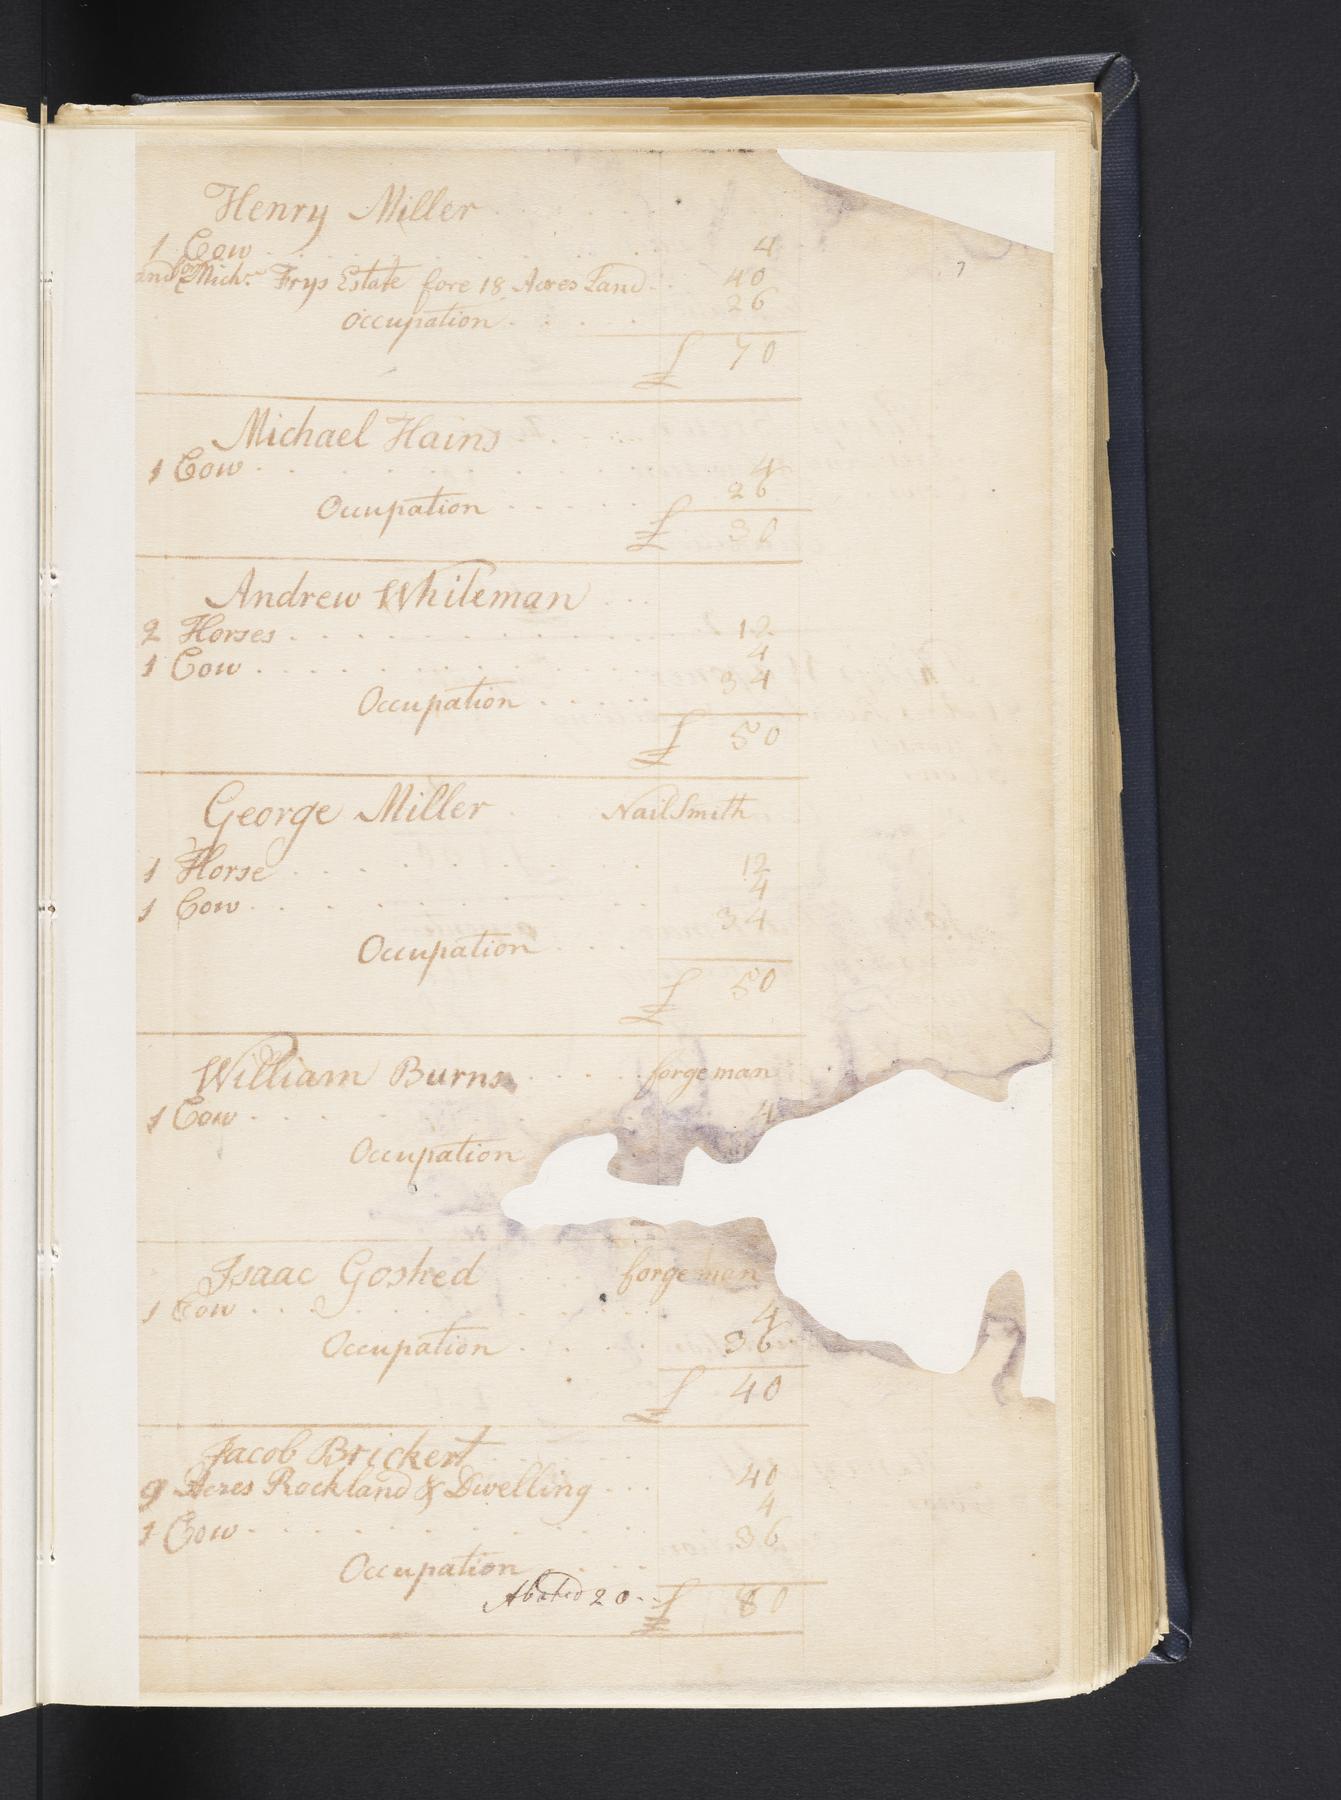 Henry Miller
1 Cow 4
and for Mich. Frys Estate fore 18 Acres Land 40
Occupation 26
£ 70
Michael Hains
1 Cow 4
Occupation 26
£ 30
Andrew Whiteman
2 Horses 12
1 Cow 4
Occupation 34
£ 50
George Miller NailSmith
1 Horse 12
1 Cow 4
Occupation 34
£ 50
William Burns forgeman
1 Cow 4
Occupation
Isaac Goshed forgeman
1 Cow 4
Occupation 36
£ 40
Jacob Brickert
9 Acres Rockland & Dwelling 40
1 Cow 4
Occupation 36
Abated 20 £ 80